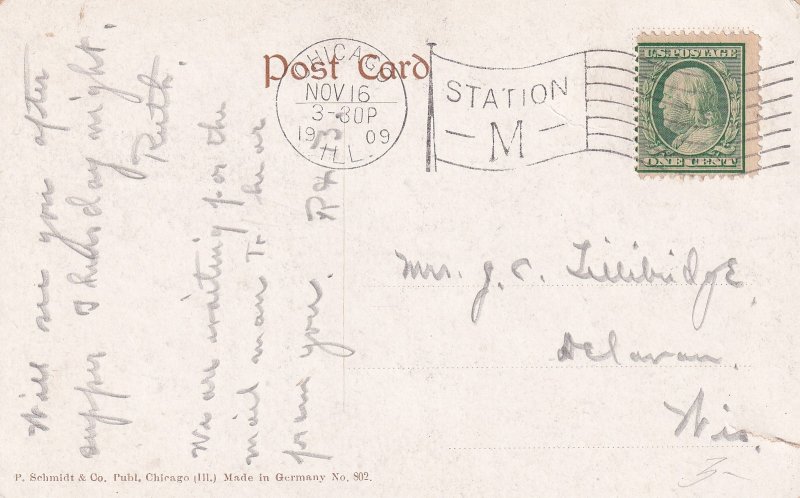 Post Card
CHICAGO
NOV 16
3-30P
19 09
ILL.
STATION
M
U.S. POSTAGE
ONE CENT
Will see you after
supper Thursday night.
Ruth.
We are waiting for the
mail man to hear
from you.
Mrs. J. C. Lillibridge,
Delavan,
Wis.
P. Schmidt & Co. Publ. Chicago (Ill.) Made in Germany No. 802.